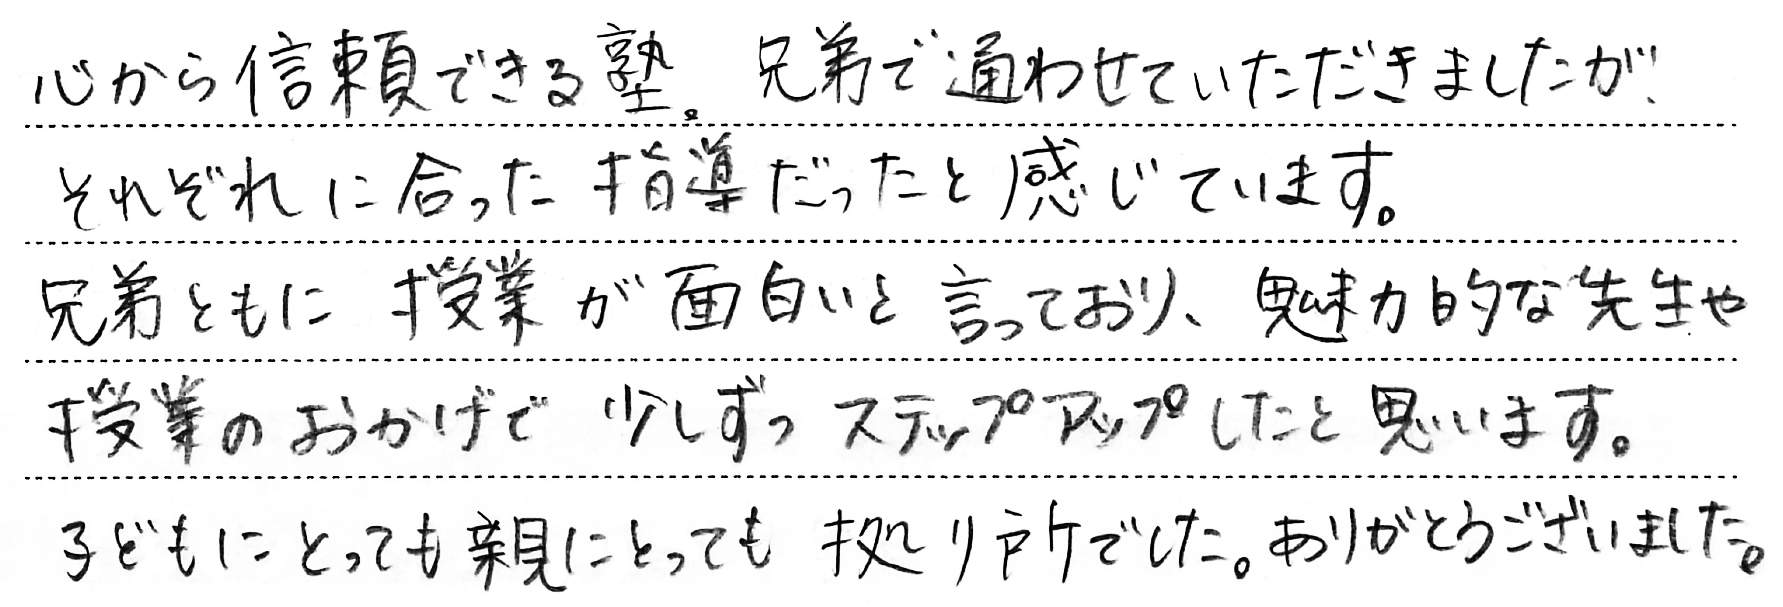 心から信頼できる塾。兄弟で通わせていただきましたが、
それぞれに合った指導だったと感じています。
兄弟ともに授業が面白いと言っており、魅力的な先生や
授業のおかげで少しずつステップアップしたと思います。
子どもにとっても親にとっても拠り所でした。ありがとうございました。